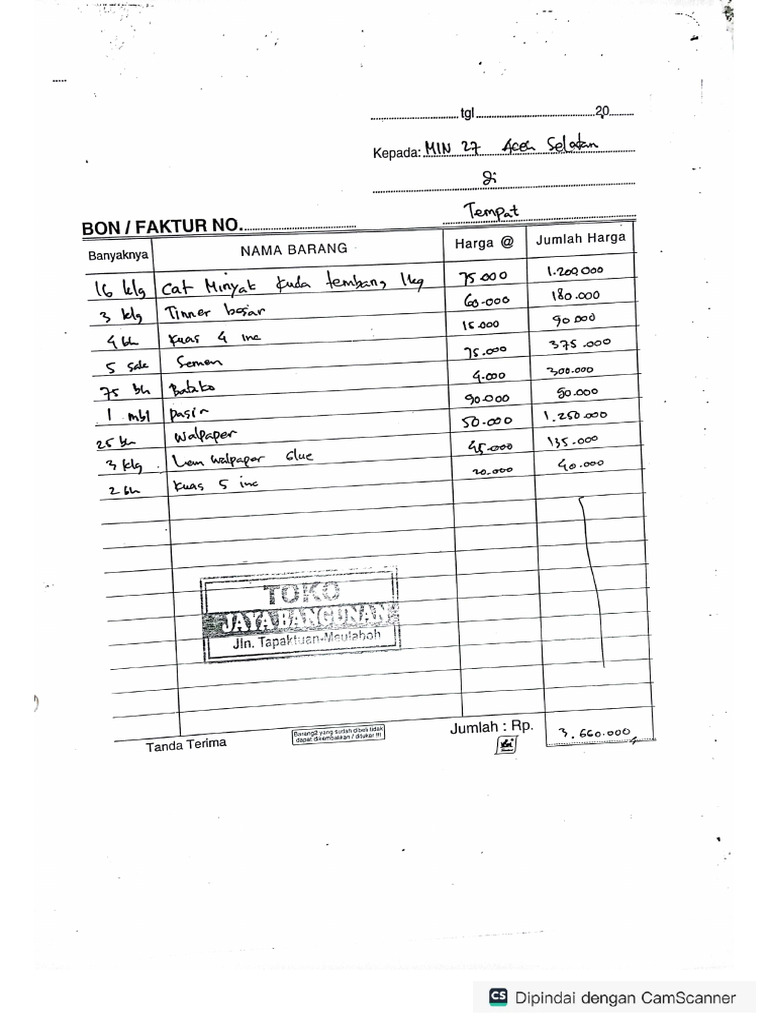 tgl 20
Kepada: MIN 27 Aceh Selatan
di
Tempat
BON / FAKTUR NO.
Banyaknya NAMA BARANG Harga @ Jumlah Harga
16 klg Cat Minyak kuda terbang 1kg 75.000 1.200.000
3 klg Tinner besar 60.000 180.000
4 bh kuas 4 inc 15.000 90.000
5 sak Semen 75.000 375.000
75 bh Batako 4.000 300.000
1 mbl pasir 90.000 90.000
25 bh Walpaper 50.000 1.250.000
3 klg Lem walpaper Glue 45.000 135.000
2 bh kuas 5 inc 20.000 40.000
TOKO
JAYA BANGUNAN
Jln. Tapaktuan-Meulaboh
Tanda Terima
Barang2 yang sudah dibeli tidak
dapat dikembalikan / ditukar !!!
Jumlah : Rp. 3.660.000
CS Dipindai dengan CamScanner